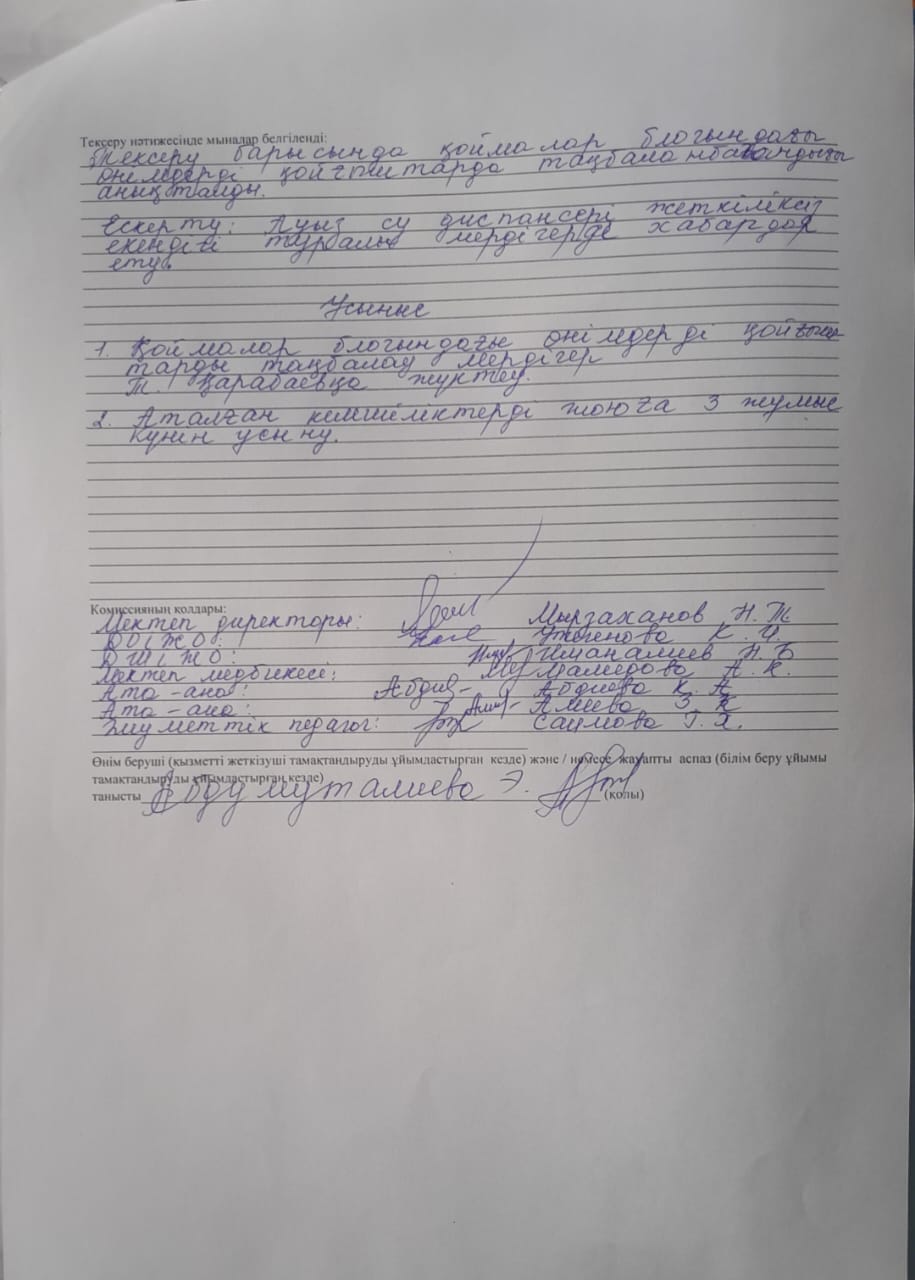 Тексеру нәтижесінде мыналар белгіленді:
Тексеру барысында қоймалар блогындағы
өнімдерді қойғыштарда таңбаланбағандығы
анықталды.
Ескерту: Ауыз су диспансері жеткіліксіз
екендігі туралы мердігерге хабардар
ету.
Ұсыныс
1. Қоймалар блогындағы өнімдерді қойғыш-
тарды таңбалау мердігер
Т. Қарабаевқа жүктеу.
2. Аталған кемшіліктерді жоюға 3 жұмыс
күнін ұсыну.
Комиссияның қолдары:
Мектеп директоры: Мырзаханов Н. Т
ДОІЖО: Утегенова К. И.
ДШІЖО: Иманалиев Н. Б
Мектеп медбикесі: Мумамедова А. К.
Ата-ана: Абдиева К. А
Ата-ана: Алиева З. К
Әлуметтік педагог: Саимова Г. Я.
Өнім беруші (қызметті жеткізуші тамақтандыруды ұйымдастырған кезде) және / немесе жауапты аспаз (білім беру ұйымы
тамақтандыруды ұйымдастырған кезде)
танысты Абдумуталиева Э. (қолы)